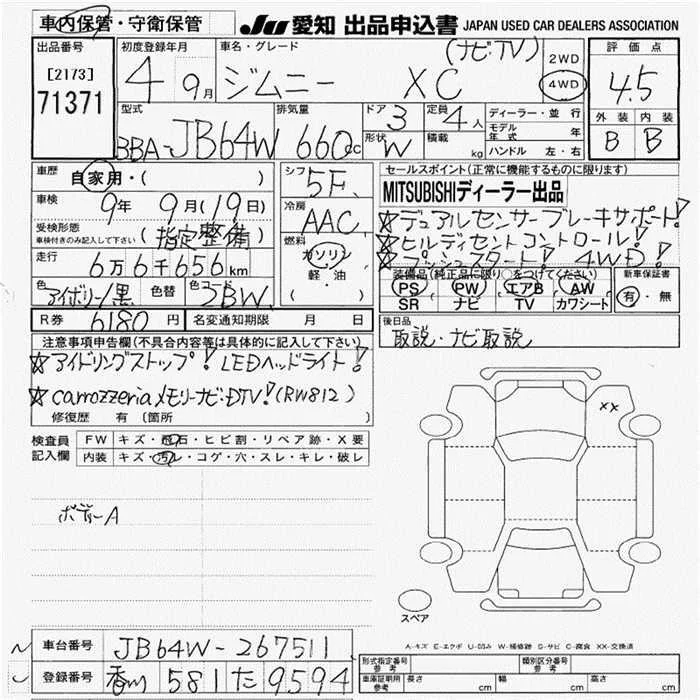 車内保管・守衛保管
JU 愛知 出品申込書 JAPAN USED CAR DEALERS ASSOCIATION
出品番号
[2173]
71371
初度登録年月
4 9月
車名・グレード
ジムニー XC (ナビTV)
2WD
4WD
評価点
4.5
外装 内装
B B
型式
3BA-JB64W
排気量
660cc
ドア 3
形状 W
定員 4人
積載 kg
ディーラー・並行
モデル年式 年
ハンドル 左・右
車歴 自家用・( )
車検 9年 9月(19日)
受検形態 (指定整備)
車検付きのみ記入して下さい
走行 6万6千656km
色 アイボリー/黒 色替 色コード 2BW
R券 6180円 名変通知期限 月 日
シフト 5F
冷房 AAC
燃料 ガソリン
軽・油
・( )
セールスポイント(正常に機能するものに限ります)
MITSUBISHIディーラー出品
☆デュアルセンサーブレーキサポート!
☆ヒルディセントコントロール!
☆プッシュスタート! 4WD!
装備品(純正品に限り○をつけてください)
PS PW エアB AW
SR ナビ TV カワシート
新車保証書
有・無
後日品
取説・ナビ取説
注意事項申告欄(不具合内容等は具体的に記入して下さい)
☆アイドリングストップ! LEDヘッドライト!
☆carrozzeriaメモリーナビ・DTV!(RW812)
修復歴 有 (箇所
検査員記入欄
FW キズ・飛石・ヒビ割・リペア跡・X要
内装 キズ・汚レ・コゲ・穴・スレ・キレ・破レ
ボディーA
XX
スペア
A-キズ E-エクボ U-凹み W-補修跡 S-サビ C-腐食 XX-交換済
車台番号 JB64W-267511
登録番号 香川 581 た 9594
形式指定番号 参考
類別区分番号 参考
車庫証明用 参考 長さ cm 幅 cm 高さ cm